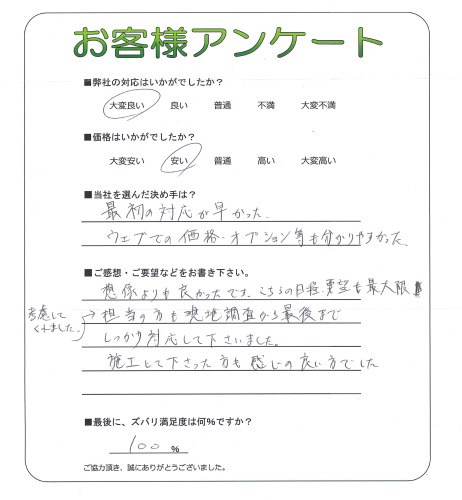 お客様アンケート
■弊社の対応はいかがでしたか？
大変良い 良い 普通 不満 大変不満
■価格はいかがでしたか？
大変安い 安い 普通 高い 大変高い
■当社を選んだ決め手は？
最初の対応が早かった.
ウェブでの価格・オプション等も分かりやすかった
■ご感想・ご要望などをお書き下さい。
想像よりも良かったです。こちらの日程、要望も最大限
考慮して
くれました。
→担当の方も現地調査から最後まで
しっかり対応して下さいました。
施工して下さった方も感じの良い方でした
■最後に、ズバリ満足度は何％ですか？
100 ％
ご協力頂き、誠にありがとうございました。